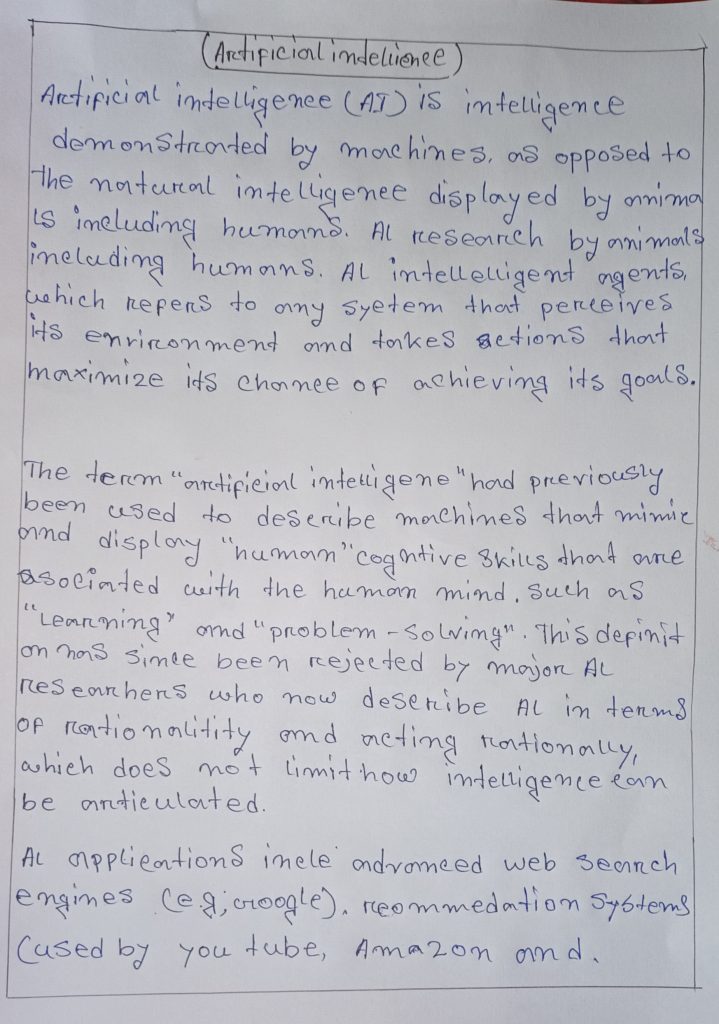 (Artificial indeluence)
Artificial intelligence (AI) is intelligence
demonstrated by machines, as opposed to
the natural intelligence displayed by anima
ls including humans. AL research by animals
including humans. AL intellelligent agents,
which refers to any syetem that perceives
its environment and takes actions that
maximize its chance of achieving its goals.
The term "artificial intelligene" had previously
been used to describe machines that mimic
and display "human" cogntive skills that are
asociated with the human mind. such as
"Learning" and "problem - solving". This definit
on has since been rejected by major AL
researhers who now describe AL in terms
of rationalitity and acting rationally,
which does not limit how intelligence can
be articulated.
AL applications incle advanced web search
engines (e.g; Google). reommedation systems
(used by you tube, Amazon and.